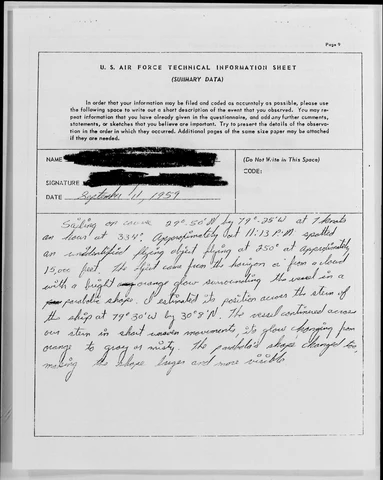 Page 9
U. S. AIR FORCE TECHNICAL INFORMATION SHEET
(SUMMARY DATA)
In order that your information may be filed and coded as accurately as possible, please use
the following space to write out a short description of the event that you observed. You may re-
peat information that you have already given in the questionnaire, and add any further comments,
statements, or sketches that you believe are important. Try to present the details of the observa-
tion in the order in which they occurred. Additional pages of the same size paper may be attached
if they are needed.
NAME
(Do Not Write in This Space)
CODE:
SIGNATURE
DATE September 11, 1959
Sailing on course 29°-50'N by 79°-25'W at 7 knots
an hour at 334°. Approximately at 11:13 P.M. spotted
an unidentified flying object flying at 250° at approximately
15,000 feet. The object came from the horizon or from a cloud
with a bright orange glow surrounding the vessel in a
parabolic shape. I estimated its position across the stern of
the ship at 79°30'W by 30°8'N. The vessel continued across
our stern in short uneven movements, its glow changing from
orange to gray or misty. The parabola's shape changed too,
making the shape larger and more visible.